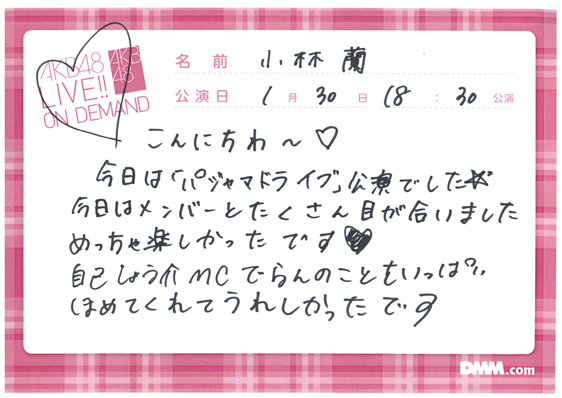 AKB48
LIVE!!
ON DEMAND
AKB
48
名前 小林 蘭
公演日 1月30日 18:30公演
こんにちわ～♡
今日は「パジャマドライブ」公演でした☆
今日はメンバーとたくさん目が合いました
めっちゃ楽しかったです♥
自己しょう介MCでらんのことをいっぱい
ほめてくれてうれしかったです
DMM.com